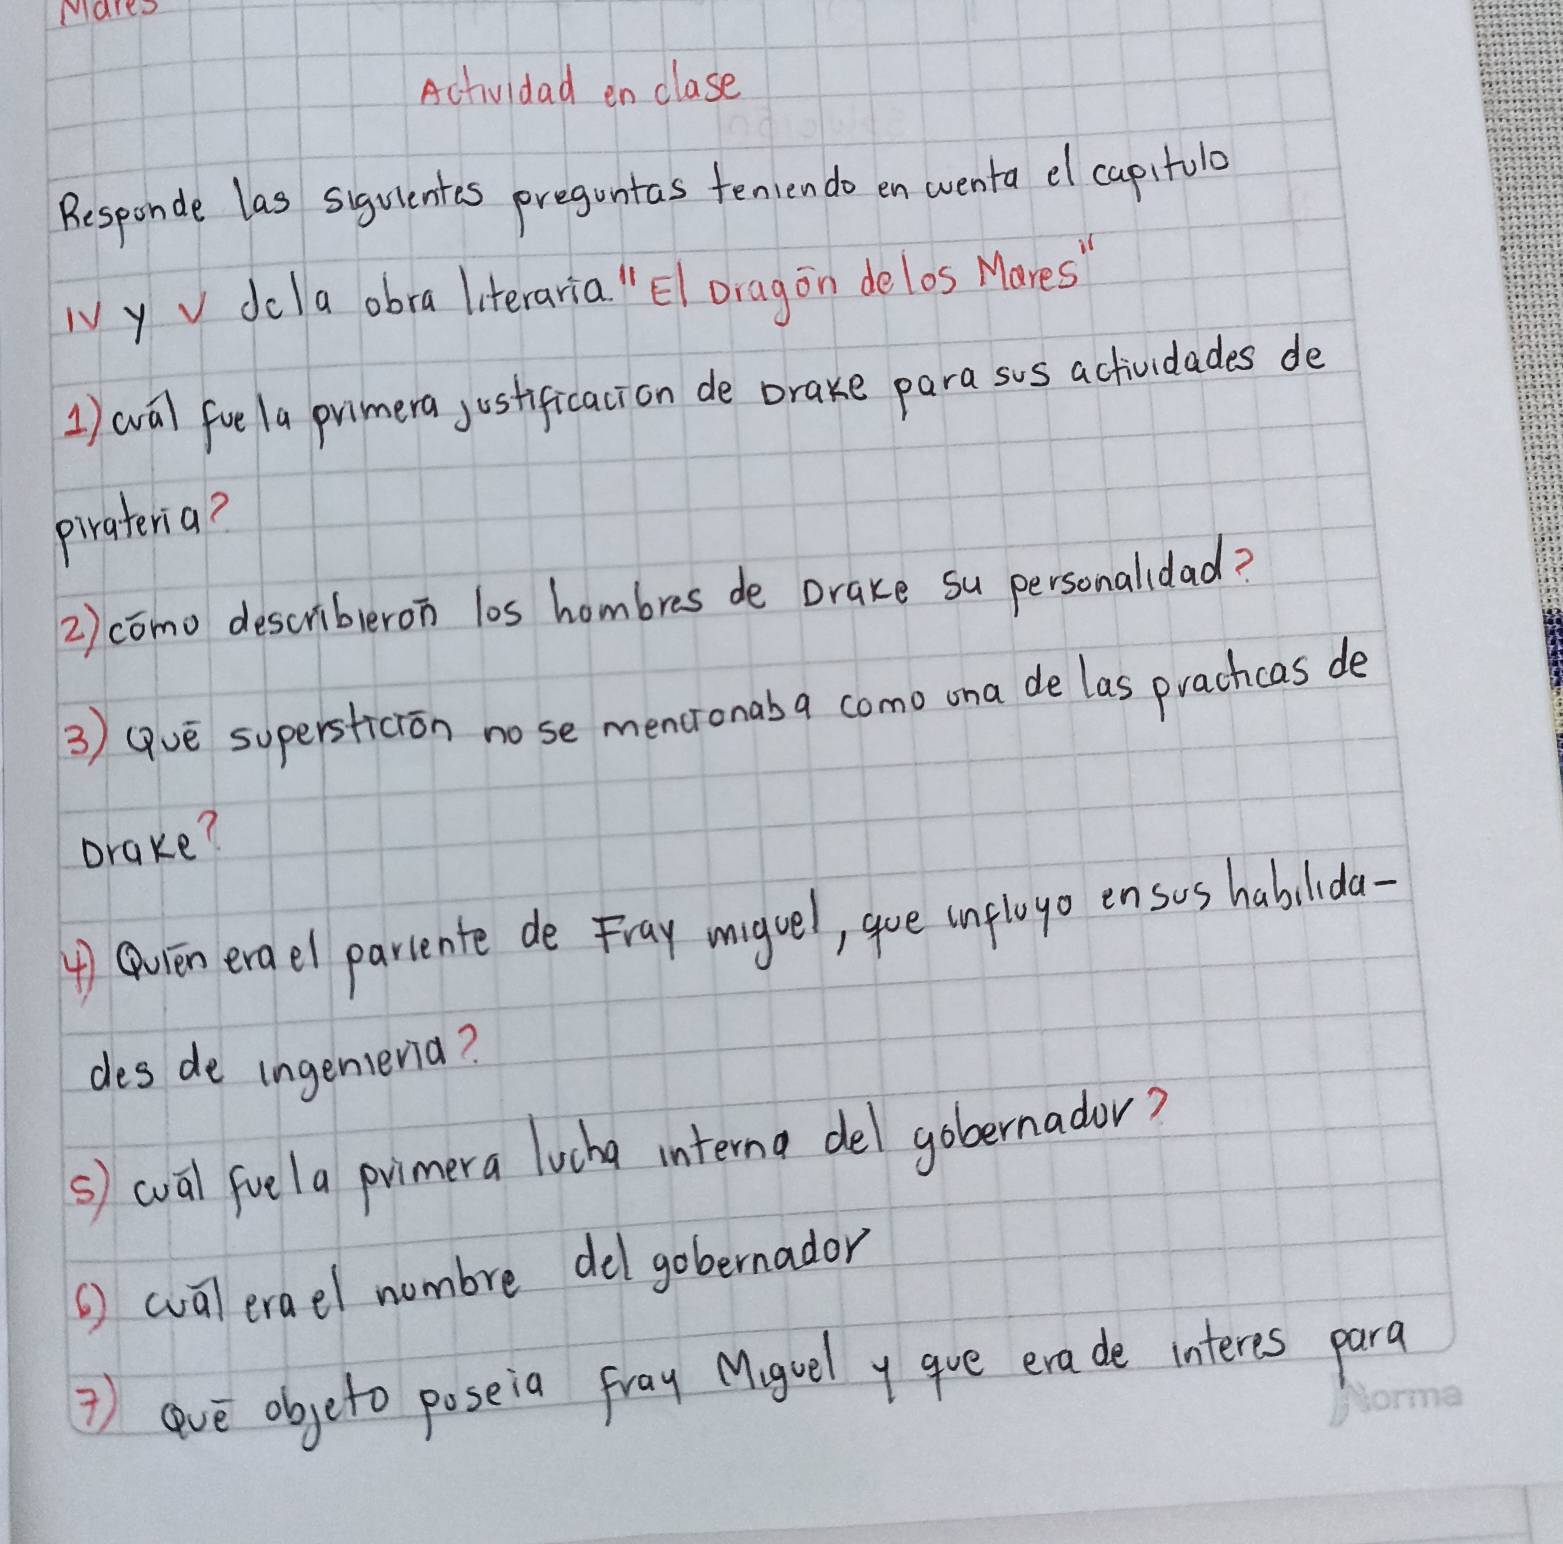 Mares
Actividad en clase
Responde las siguientes preguntas teniendo en cuenta el capitulo
IV y V dela obra literaria. "El Dragón delos Mares"
1) cuál fue la primera justificacion de Drake para sus actividades de
pirateria?
2) cómo describierón los hombres de Drake su personalidad?
3) Qué superstición no se mencionaba como una de las practicas de
Drake?
4) Quién era el pariente de Fray miguel, que influyo en sus habilida-
des de ingenieria?
5) cuál fue la primera lucha interna del gobernador?
6) cuál era el nombre del gobernador
7) Qué objeto poseia fray Miguel y que era de interes para
Norma